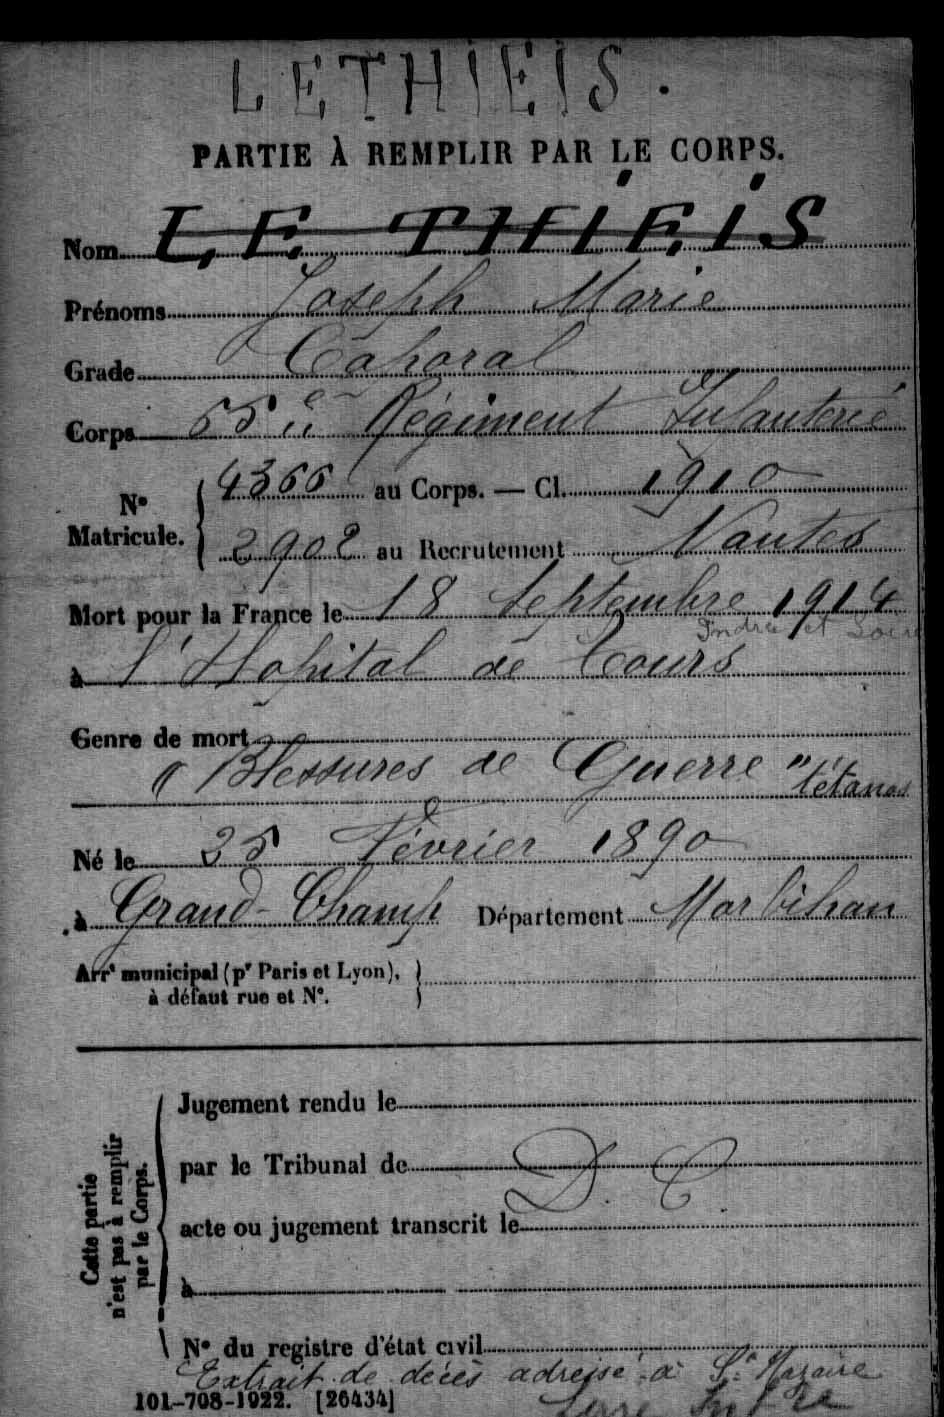 LETHIEIS.
PARTIE À REMPLIR PAR LE CORPS.
Nom LE THIEIS
Prénoms Joseph Marie
Grade Caporal
Corps 65è Régiment Infanterie
N° Matricule. 4366 au Corps. — Cl. 1910
2902 au Recrutement Nantes
Mort pour la France le 18 Septembre 1914
Indre et Loire
à l'Hopital de Tours
Genre de mort
"Blessures de Guerre" tétanos
Né le 25 Février 1890
à Grand-Champ Département Morbihan
Arrt municipal (pr Paris et Lyon),
à défaut rue et N°.
Cette partie
n'est pas à remplir
par le Corps.
Jugement rendu le
par le Tribunal de D.C.
acte ou jugement transcrit le
à
N° du registre d'état civil
Extrait de décès adressé à St Nazaire
101-708-1922. [26434] Loire Infre